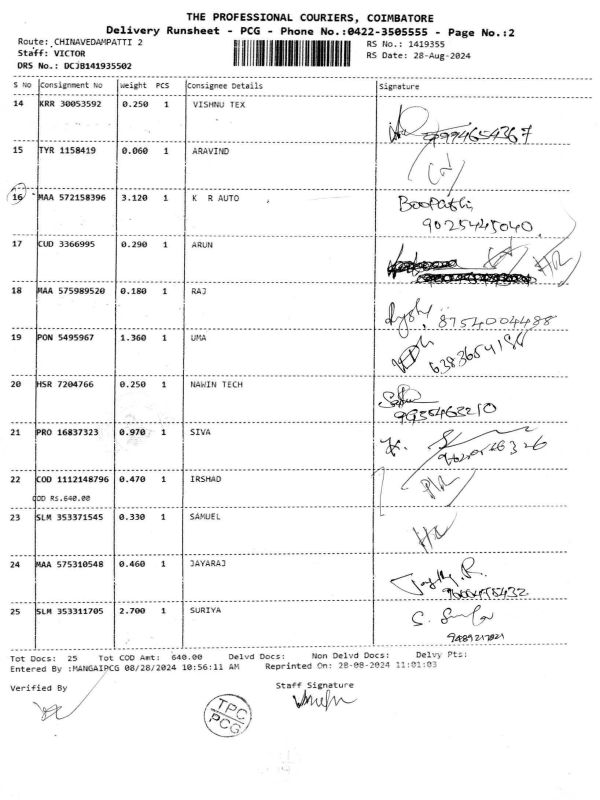 THE PROFESSIONAL COURIERS, COIMBATORE
Delivery Runsheet - PCG - Phone No.:0422-3505555 - Page No.:2
Route: CHINAVEDAMPATTI 2
Staff: VICTOR
DRS No.: DCJB141935502
RS No.: 1419355
RS Date: 28-Aug-2024
S No Consignment No Weight PCS Consignee Details Signature
14 KRR 30053592 0.250 1 VISHNU TEX
15 TYR 1158419 0.060 1 ARAVIND
16 MAA 572158396 3.120 1 K R AUTO Boopathi
9025445040
17 CUD 3366995 0.290 1 ARUN
18 MAA 575989520 0.180 1 RAJ 8754004488
19 PON 5495967 1.360 1 UMA
20 HSR 7204766 0.250 1 NAWIN TECH
21 PRO 16837323 0.970 1 SIVA
22 COD 1112148796 0.470 1 IRSHAD
COD RS.640.00
23 SLM 353371545 0.330 1 SAMUEL
24 MAA 575310548 0.460 1 JAYARAJ
25 SLM 353311705 2.700 1 SURIYA
Tot Docs: 25 Tot COD Amt: 640.00 Delvd Docs: Non Delvd Docs: Delvy Pts:
Entered By :MANGAIPCG 08/28/2024 10:56:11 AM Reprinted On: 28-08-2024 11:01:03
Verified By
Staff Signature
TPC
PCG